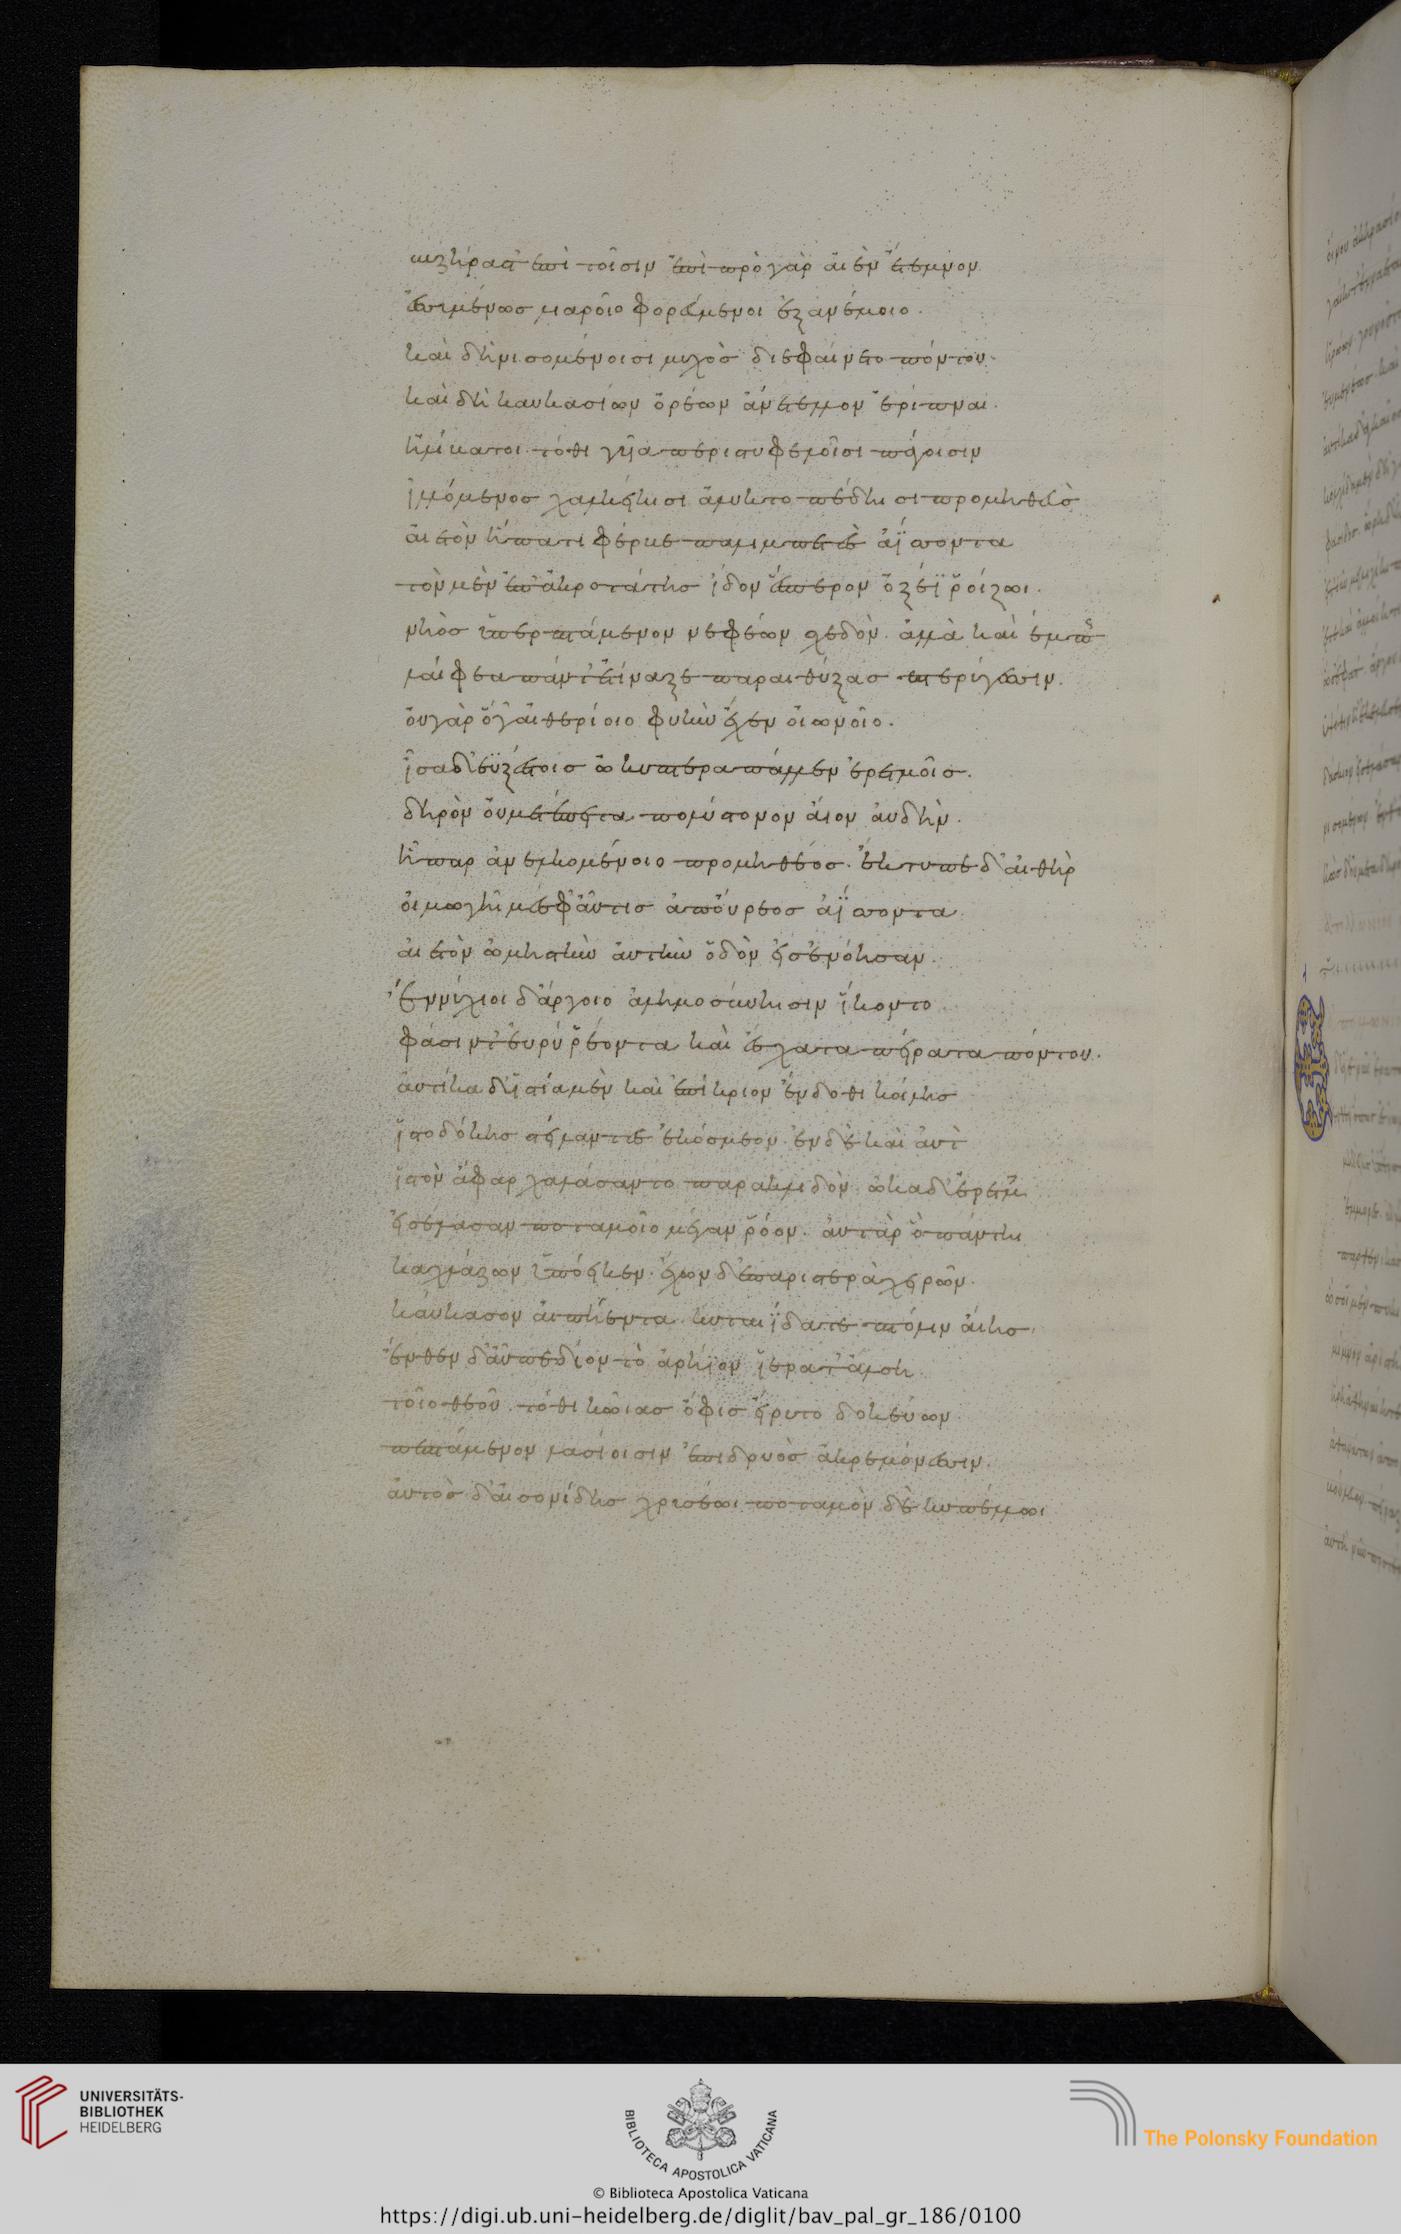 βυζήρασ τ' ἐπὶ τοῖσιν ἐπὶ πρὸ γὰρ αἰὲν ἔτεμνον
ἐσσυμένωσ λιαροῖο φορεύμενοι ἐξ ἀνέμοιο.
καὶ δὴ νισομένοισι μυχὸσ διεφαίνετο πόντου.
καὶ δὴ καυκασίων ὀρέων ἀνέτελλον ἐρίπναι.
ἠλίβατοι. τόθι γυῖα περι στυφελοῖσι πάγοισιν
ἰλλόμενοσ χαλκείησι ἀλυκτοπέδησι προμηθεὺσ
αἰετὸν ἥπατι φέρβε παλιμπετὲσ ἀΐσσοντα
τὸν μὲν ἐπ' ἀκροτάτησ ἴδον ἕσπερον ὀξέϊ ῥοίζωι.
νηὸσ ὑπερπτάμενον νεφέων σχεδὸν. ἀλλὰ καὶ ἔμπησ
λαίφεα πάντ' ἐτίναξε παραιθύξασ πτερύγεσσιν.
οὐ γὰρ ὅγ' αἰθερίοιο φυὴν ἔχεν οἰωνοῖο.
ἶσα δ' ἐϋξέστοισ ὠκυπτερα πάλλεν ἐρετμοῖσ.
δηρὸν οὐ μετέπειτα πολύστονον ἄιον αὐδὴν.
ἧπαρ ἀνελκομένοιο προμηθέοσ. ἔκτυπε δ' αἰθὴρ
οἰμωγῆι μέσφ' αὖτισ ἀπ' οὔρεοσ ἀΐσσοντα
αἰετὸν ὠμηστὴν αὐτὴν ὁδὸν εἰσενόησαν.
ἐννύχιοι δ' ἄργοιο δαημοσύνησιν ἵκοντο
φάσιν τ' εὐρὺ ῥέοντα καὶ ἔσχατα πείρατα πόντου.
αὐτίκα δ' ἱστία μὲν καὶ ἐπίκριον ἔνδοθι κοίλησ
ἱστοδόκησ στείλαντεσ ἐκόσμεον. ἐν δὲ καὶ αὐτὸν
ἱστὸν ἄφαρ χαλάσαντο παρακλιδὸν. ὦκα δ' ἐρετμοῖσ
εἰσέλασαν ποταμοῖο μέγαν ῥόον. αὐτὰρ ὁ πάντη
καχλάζων ὑπόεικεν. ἔχων δ' ἐπ' αριστερὰ χειρῶν.
καύκασον αἰπήεντα. κυταιΐδα τε πτόλιν αἴησ.
ἔνθεν δ' αὖ πεδίον τὸ ἀρήϊον ἱερα τ' ἄλση
τοῖο θεοῦ. τόθι κῶιασ ὄφισ εἴρυτο δοκεύων
πεπτάμενον λασίοισιν ἐπι δρυὸσ ἀκρεμόνεσσιν.
αὐτὸσ δ' αἰσονίδησ χρυσέωι ποταμὸν δὲ κυπέλλωι
UNIVERSITÄTS-
BIBLIOTHEK
HEIDELBERG
BIBLIOTECA APOSTOLICA VATICANA
The Polonsky Foundation
© Biblioteca Apostolica Vaticana
https://digi.ub.uni-heidelberg.de/diglit/bav_pal_gr_186/0100